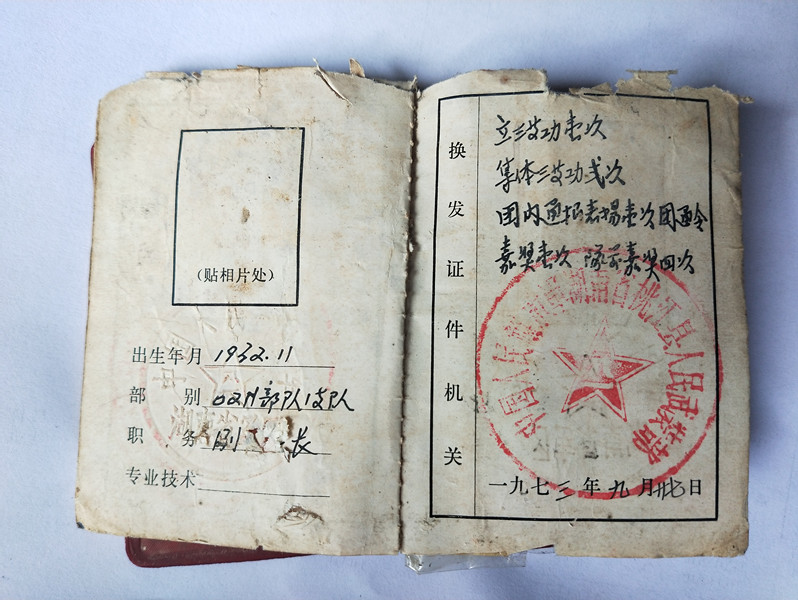 (贴相片处)
出生年月 1932.11
部别 部队支队
职务 副 长
专业技术
换发证件机关
立三等功壹次
集体三等功弍次
团内通报表扬壹次团通令
嘉奖壹次 队前嘉奖四次
中国人民解放军湖南省桃江县人民武装部
一九七三年九月廿七日